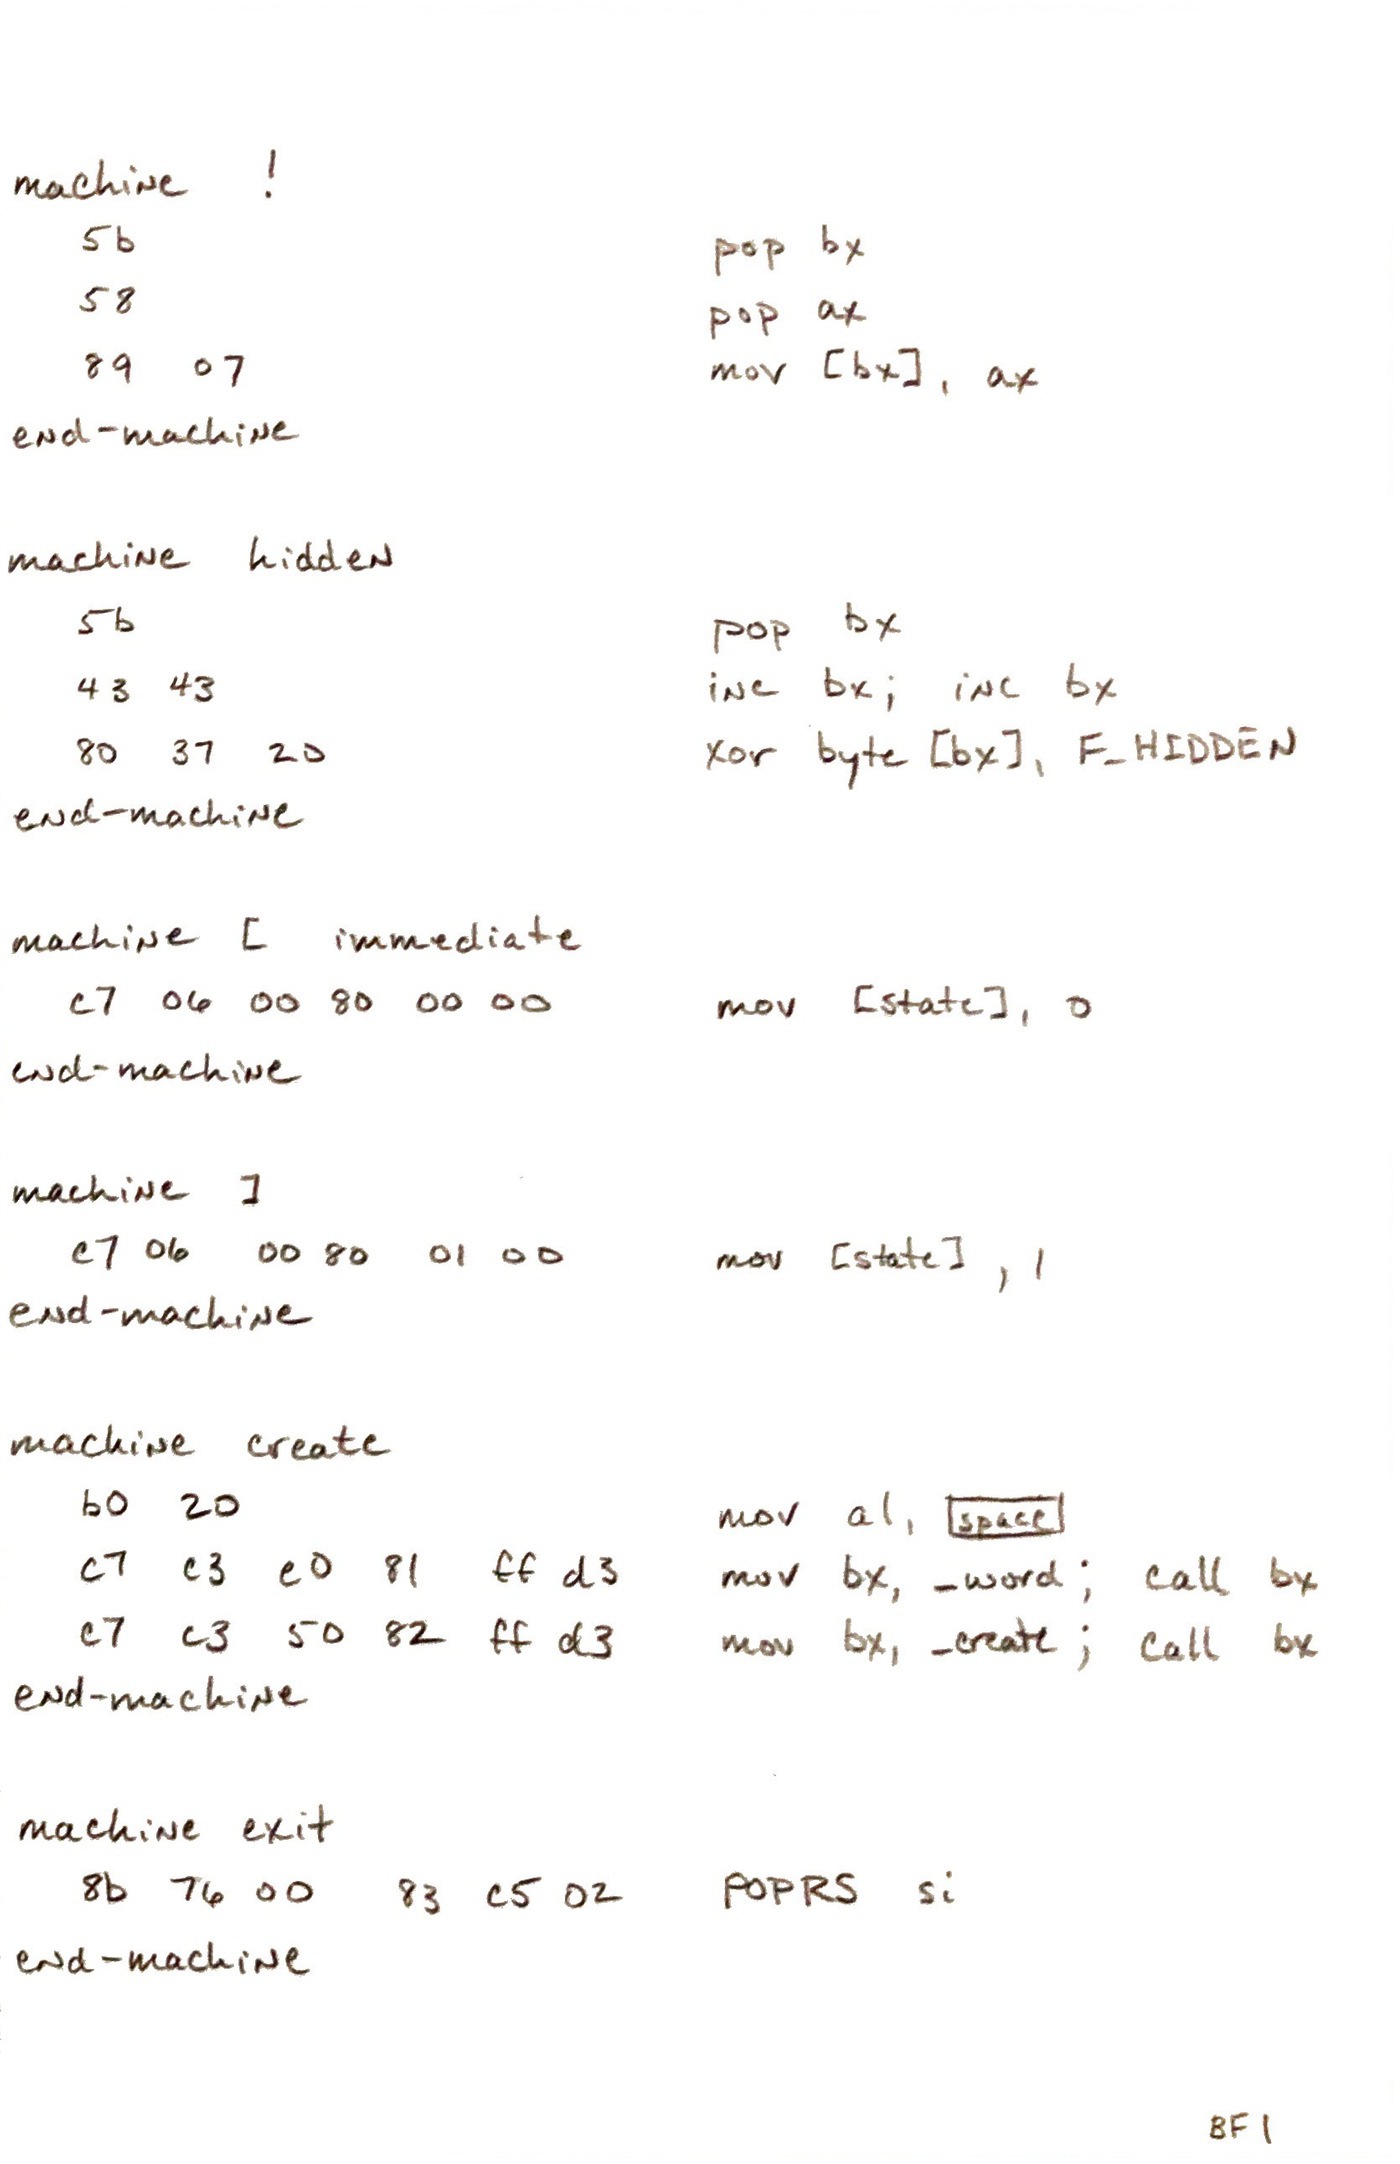 machine !
5b pop bx
58 pop ax
89 07 mov [bx], ax
end-machine
machine hidden
5b pop bx
43 43 inc bx; inc bx
80 37 20 xor byte [bx], F_HIDDEN
end-machine
machine [ immediate
c7 06 00 80 00 00 mov [state], 0
end-machine
machine ]
c7 06 00 80 01 00 mov [state], 1
end-machine
machine create
b0 20 mov al, space
c7 c3 e0 81 ff d3 mov bx, _word; call bx
c7 c3 50 82 ff d3 mov bx, _create; call bx
end-machine
machine exit
8b 76 00 83 c5 02 POPRS si
end-machine
BF1